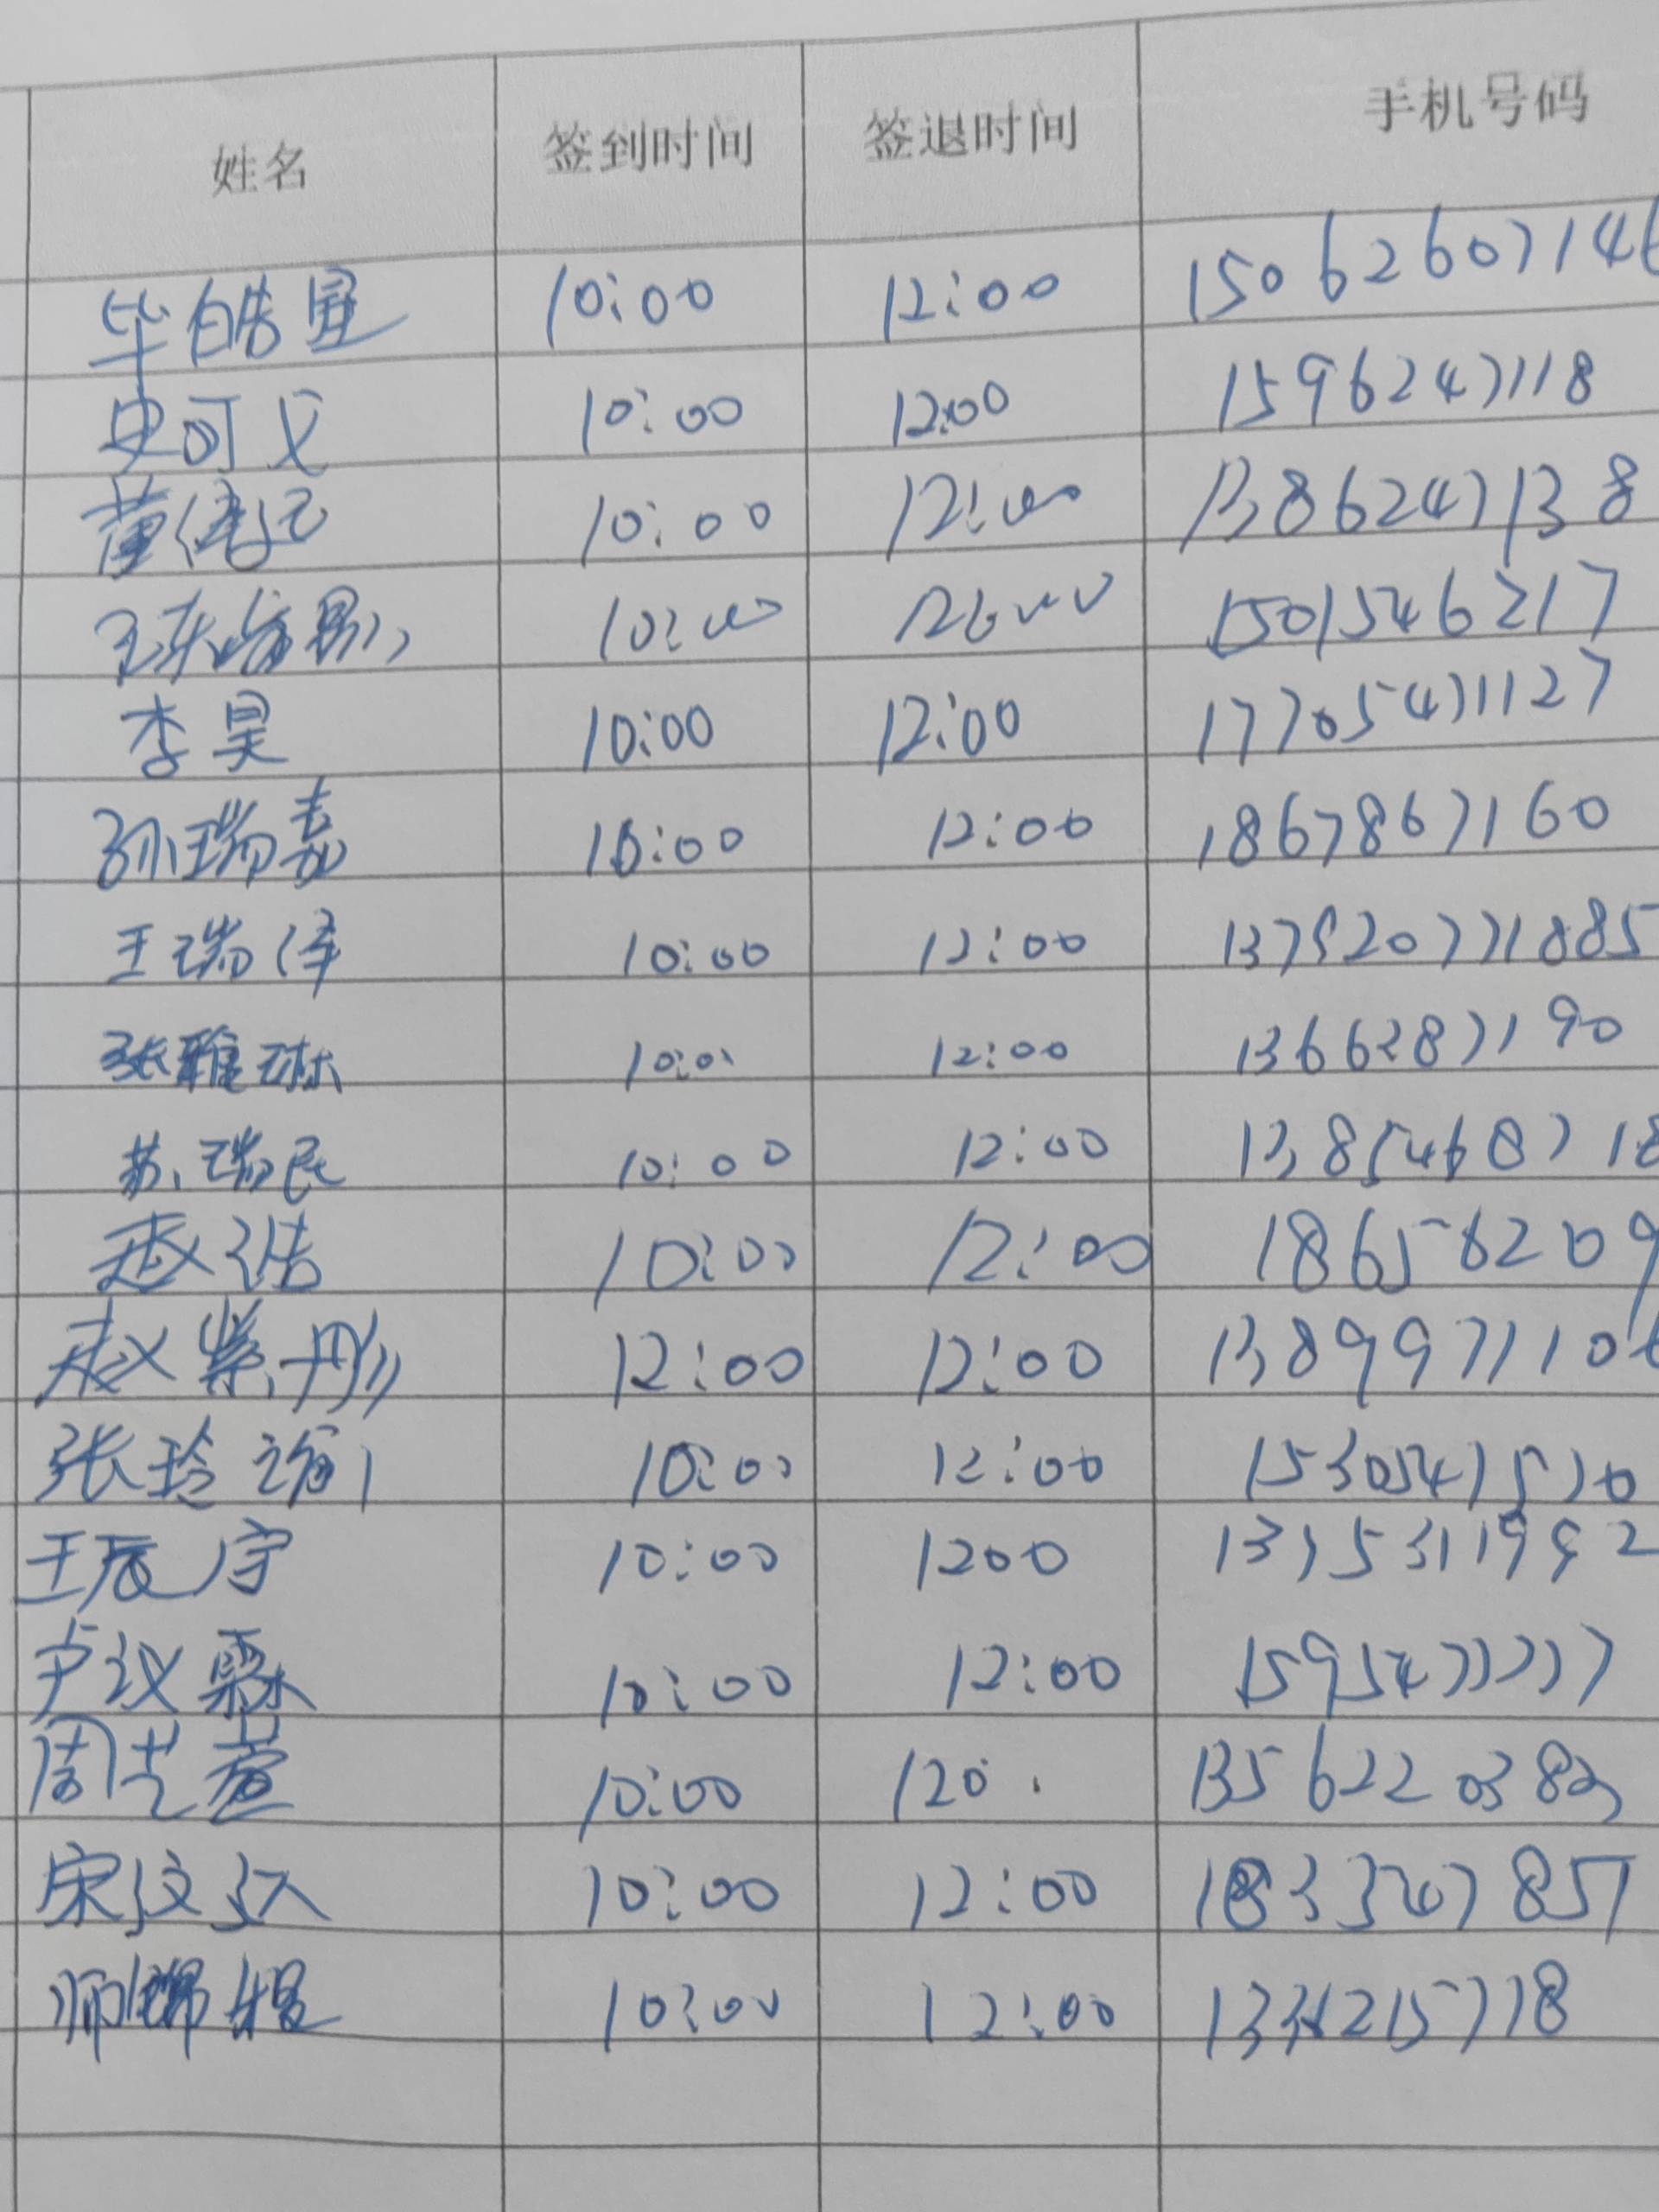 姓名 签到时间 签退时间 手机号码
毕皓宣 10:00 12:00 15062607146
史可义 10:00 12:00 15962471118
董 10:00 12:00 13862471138
10:00 1501546217
李昊 10:00 12:00 17705471127
孙瑞嘉 10:00 12:00 18678671160
王瑞泽 10:00 12:00
张雅琳 10:00 12:00 13662871190
苏瑞民 10:00 12:00 13854687718
赵浩 10:00 12:00 186586209
赵紫彤 12:00 12:00 13899711106
张玲 10:00 12:00 15305471570
王辰宇 10:00 1200 13753119992
尹议霖 10:00 12:00 15954777777
周艺萱 10:00 120 1356220383
宋汶 10:00 12:00 1833347857
师锦程 10:00 12:00